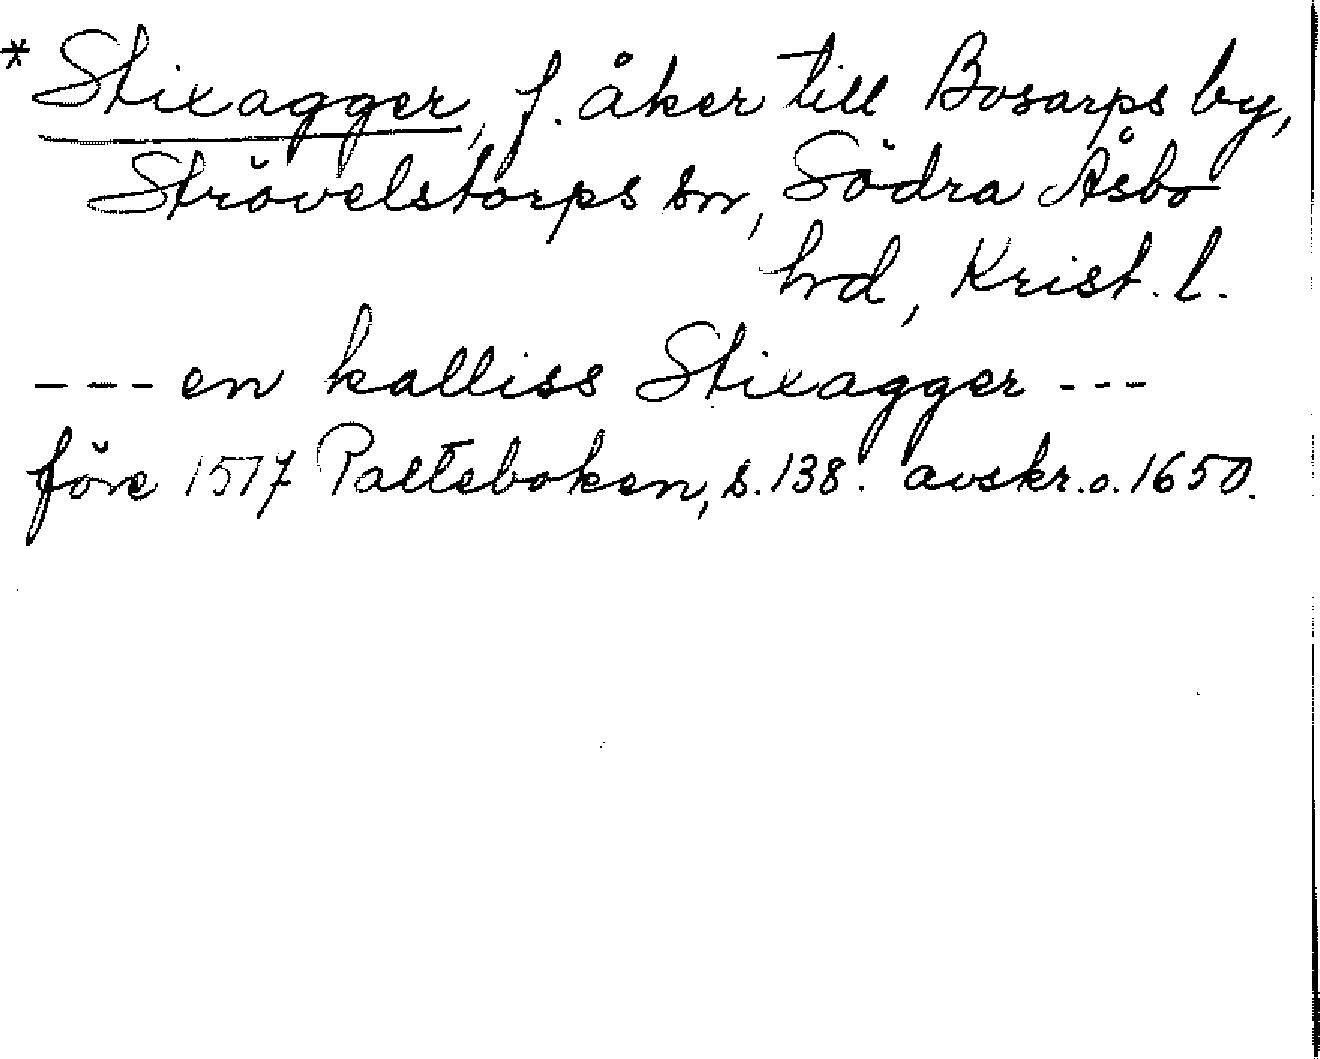 * Stixagger, f. åker till Bosarps by,
Strövelstorps sn, Södra Åsbo
hd, Krist. l.
--- en kalliss Stixagger ---
före 1517 Palteboken, s. 138. avskr. o. 1650.